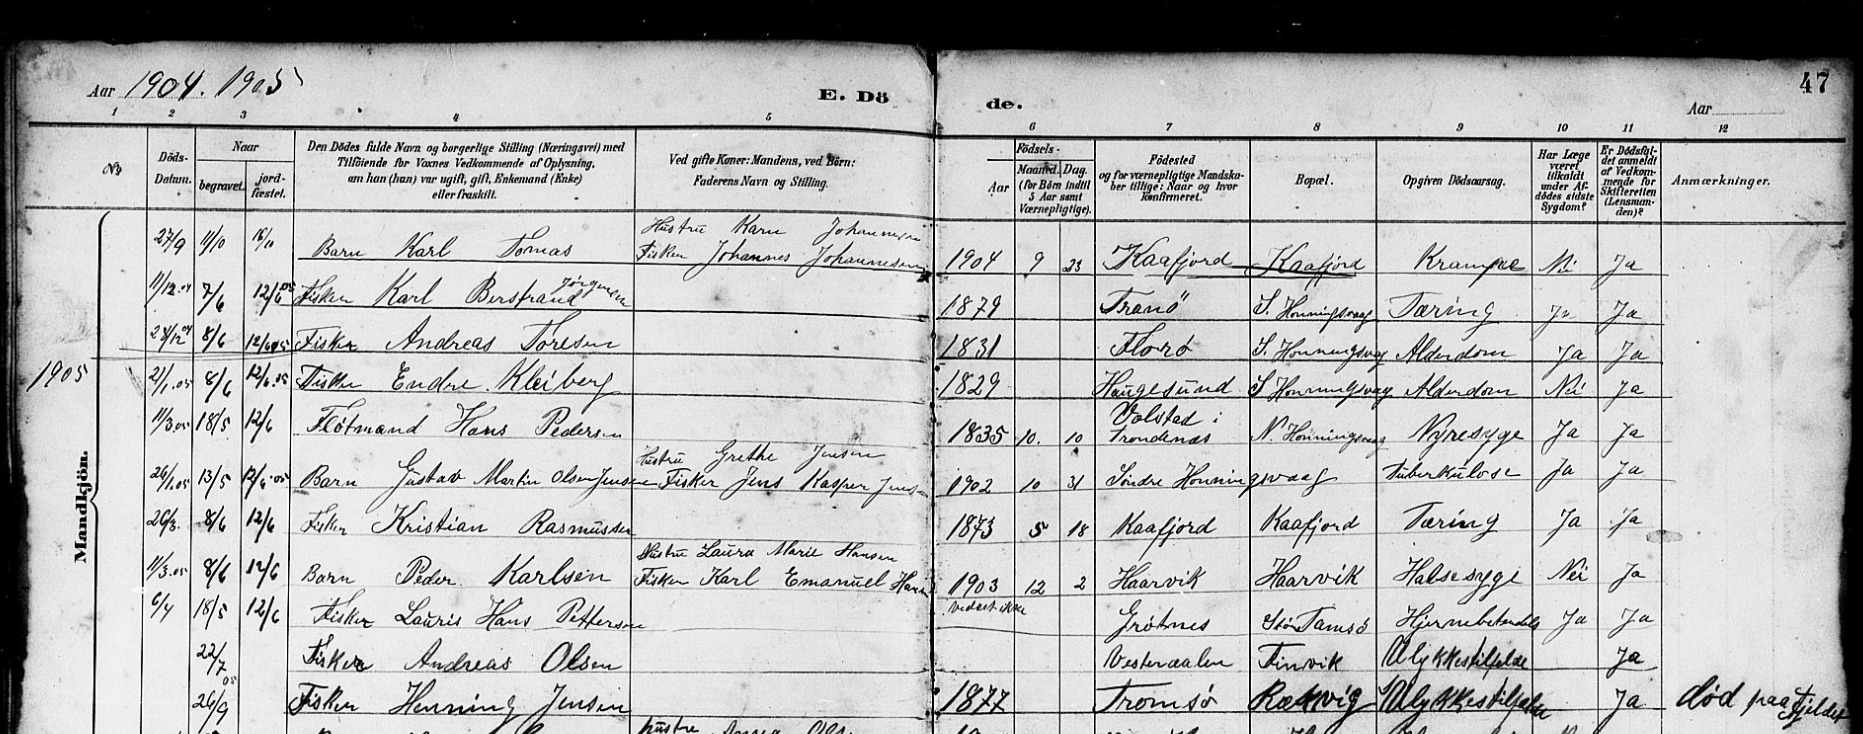 47
Aar 1904. 1905
E. Döde.
Aar
1 2 3 4 5 6 7 8 9 10 11 12
No
Döds-Datum.
Naar
begravet.
jord-fæstet.
Den Dödes fulde Navn og borgerlige Stilling (Næringsvei) med
Tilföiende for Voxnes Vedkommende af Oplysning,
om han (hun) var ugift, gift, Enkemand (Enke)
eller fraskilt.
Ved gifte Koner: Mandens, ved Börn:
Faderens Navn og Stilling.
Födsels-
Aar
Maaned.
Dag.
(for Börn indtil
5 Aar samt
Værnepligtige).
Födested
og for værnepligtige Mandska-
ber tillige: Naar og hvor
konfirmeret.
Bopæl.
Opgiven Dödsaarsag.
Har Læge
været
tilkaldt
under Af-
dödes sidste
Sygdom?
Er Dödsful-
det anmeldt
af Vedkom-
mende for
Skifteretten
(Lensman-
den)?
Anmærkninger.
Mandkjön.
Hustru Karn Johannesen
27/9 11/10 Barn Karl Tomas Fisker Johannes Johannesen 1904 9 23 Kaafjord Kaafjord Krampe Nei Ja
11/12 04 7/6 12/6 05 Fisker Karl Berstrand Jörgensen 1879 Tranö S. Honningsvaag Tæring Ja Ja
8/6 12/6 05 Fisker Andreas Toresen 1831 Florö S. Honningsvag Alderdom Ja Ja
1905
21/1.05 8/6 12/6.05 Fisker Endre Kleiberg 1829 Haugesund S Honningsvag Alderdom Nei Ja
11/3.05 18/5 12/6 Fløtmand Hans Pedersen 1835 10. 10 Volstad i Trondenæs N. Honningsvaag Nyresyge Ja Ja
Hustru Grethe Jensen
26/1.05 13/5 12/6.05 Barn Gustav Martin Olsen Jensen Fisker Jens Kasper Jensen 1902 10 31 Söndre Honningsvaag Tuberkulose Ja Ja
26/3. 8/6 12/6 Fisker Kristian Rasmussen 1873 5 18 Kaafjord Kaafjord Tæring Ja Ja
Hustru Laura Marie Hansen
11/3.05 8/6 12/6 Barn Peder Karlsen Fisker Karl Emanuel 1903 12 2 Haarvik Haarvik Halsesyge Nei Ja
6/4 18/5 12/6 Fisker Lauris Hans Pettersen Vedest ikke Grøtnes Tamsö Ja Ja
22/7 05 Fisker Andreas Olsen Vesteraalen Finvik Ulykkestilfælde Ja
26/9 Fisker Henning Jensen 1877 Tromsö Rækvig Ulykkestilfælde Ja död paa Fjeldet